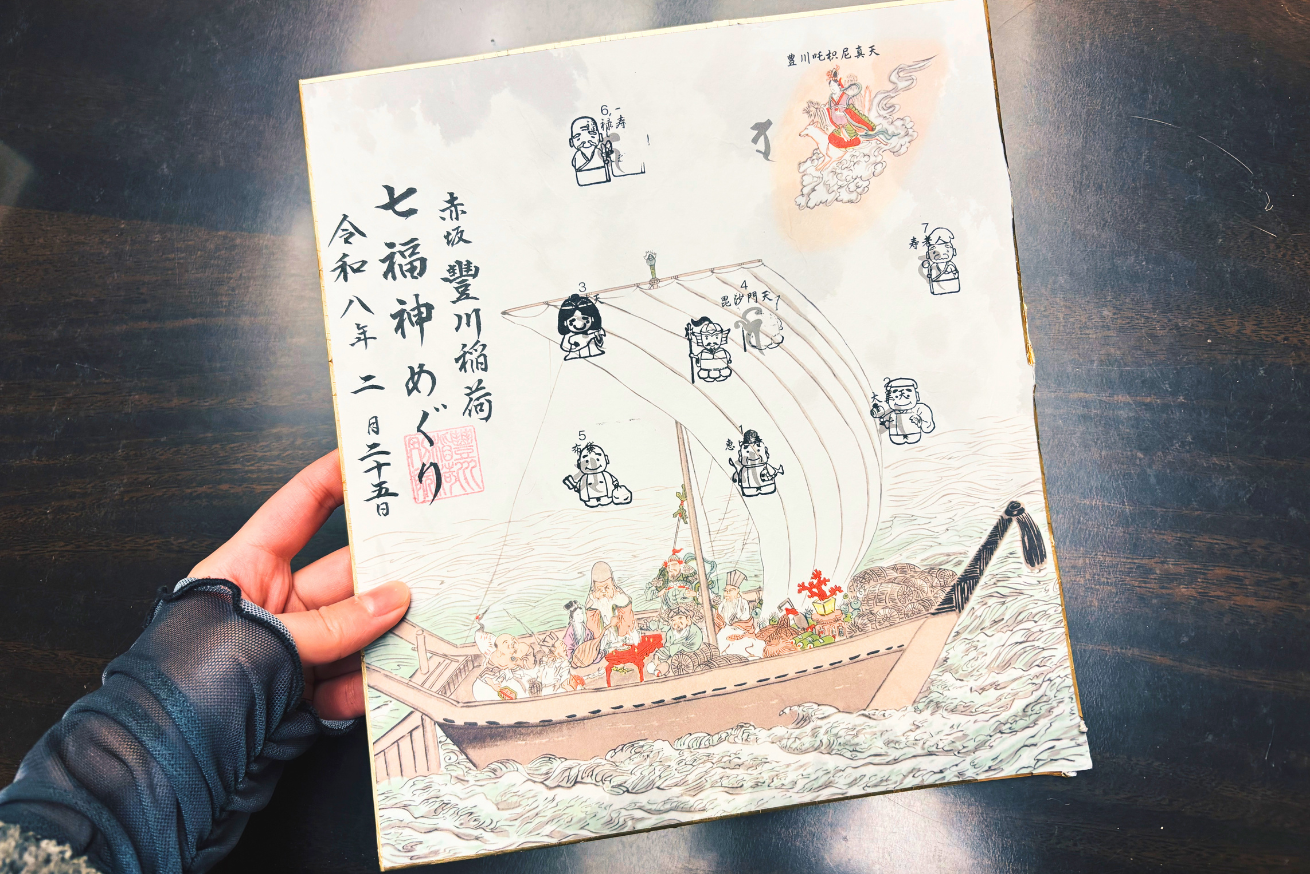 豊川吒枳尼真天
赤坂 豐川稲荷
七福神めぐり
令和八年 二月二十五日
6
寿
禄
7
寿老人
3
天
4
毘沙門天
2
大
5
布袋
1
恵